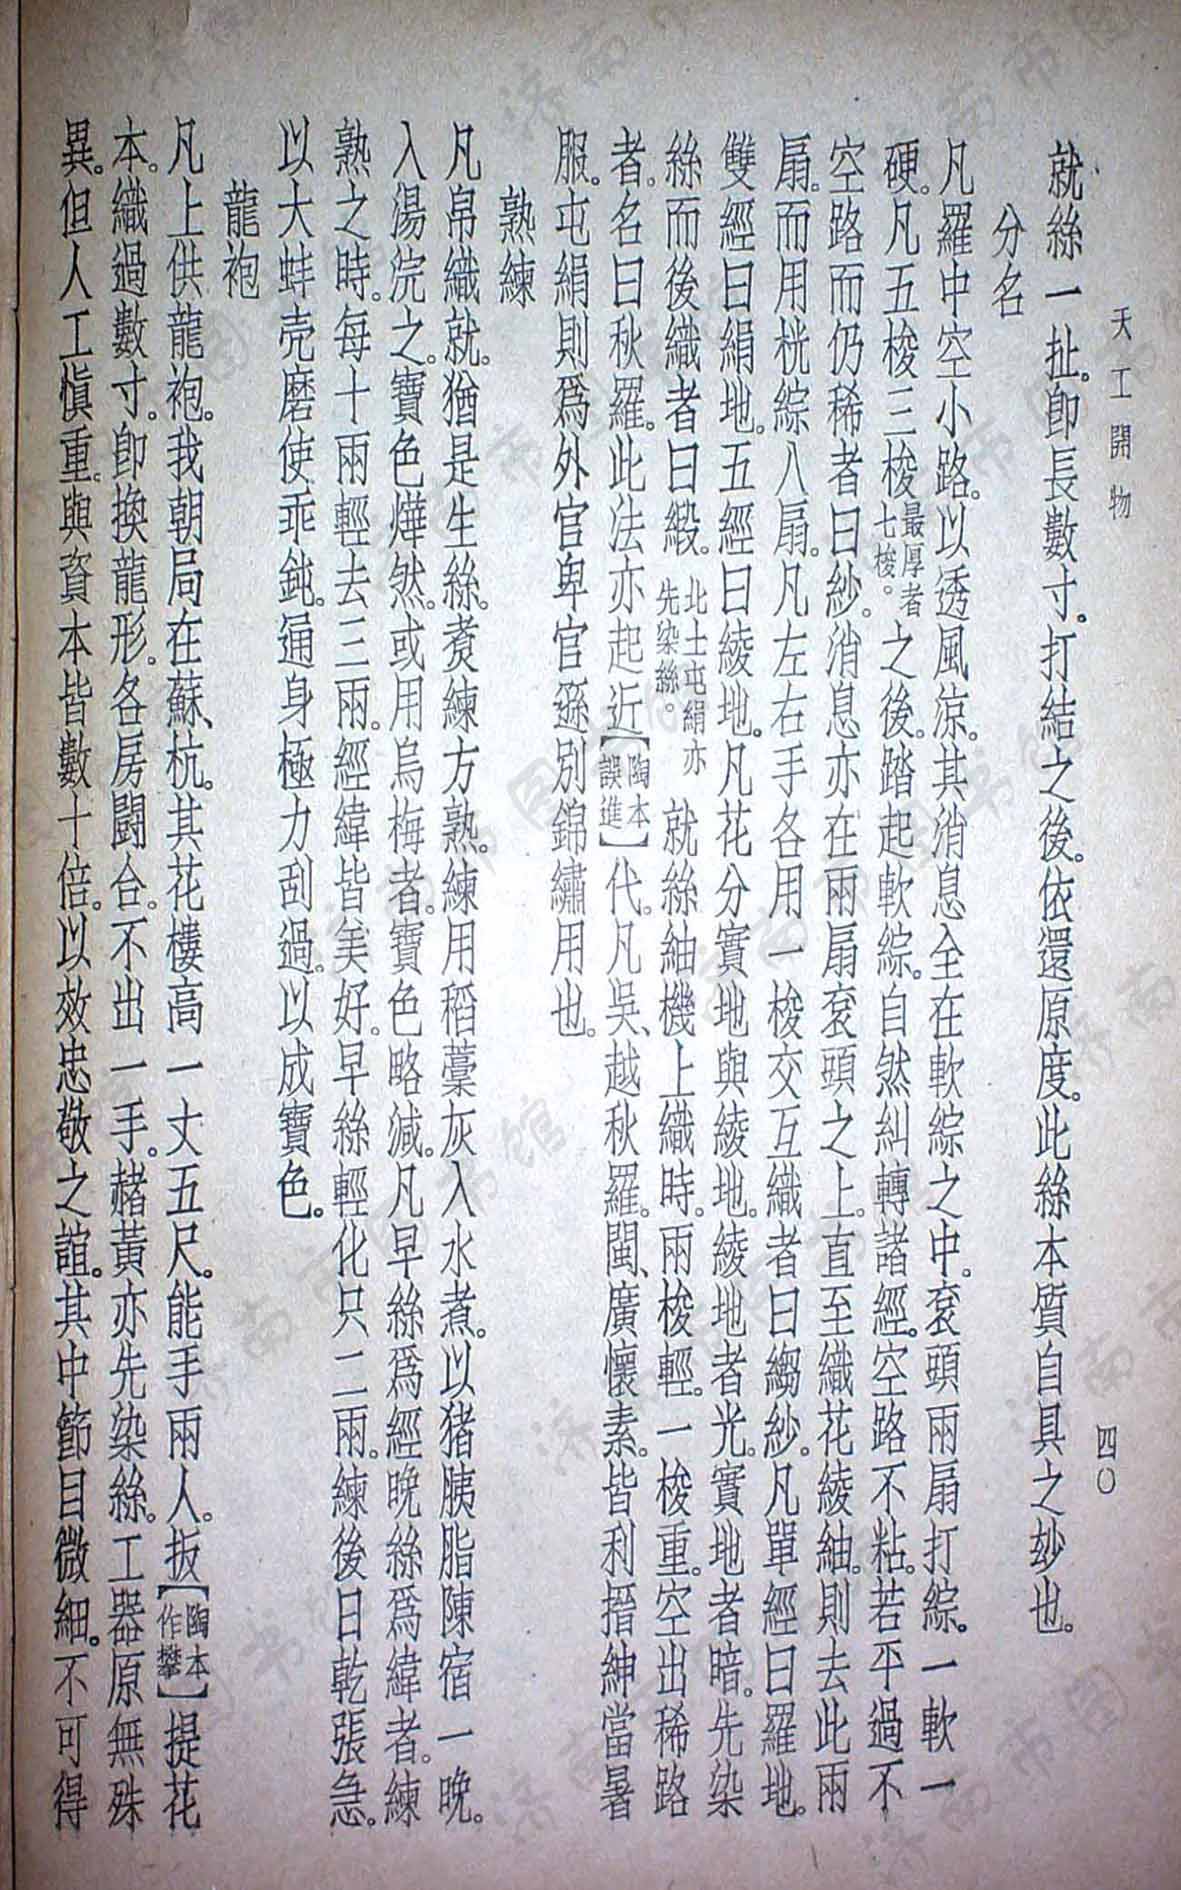 天工開物
四〇
就絲一扯。卽長數寸。打結之後。依還原度。此絲本質自具之妙也。
分名
凡羅中空小路。以透風涼。其消息全在軟綜之中。袞頭兩扇打綜。一軟一
硬。凡五梭三梭最厚者七梭。之後。踏起軟綜。自然糾轉諸經。空路不粘。若平過不
空路而仍稀者曰紗。消息亦在兩扇袞頭之上。直至織花綾紬。則去此兩
扇。而用桄綜八扇。凡左右手各用一梭交互織者曰縐紗。凡單經曰羅地。
雙經曰絹地。五經曰綾地。凡花分實地與綾地。綾地者光。實地者暗。先染
絲而後織者曰緞。北土屯絹亦先染絲。就絲紬機上織時。兩梭輕。一梭重。空出稀路
者。名曰秋羅。此法亦起近【陶本誤進】代。凡吳、越秋羅。閩、廣懷素。皆利搢紳當暑
服。屯絹則爲外官卑官遜別錦繡用也。
熟練
凡帛織就。猶是生絲。煑練方熟。練用稻藁灰入水煮。以猪胰脂陳宿一晚。
入湯浣之。寶色燁然。或用烏梅者。寶色略減。凡早絲爲經晚絲爲緯者。練
熟之時。每十兩輕去三兩。經緯皆美好。早絲輕化只二兩。練後日乾張急。
以大蚌壳磨使乖鈍。通身極力刮過。以成寶色。
龍袍
凡上供龍袍。我朝局在蘇、杭。其花樓高一丈五尺。能手兩人。扳【陶本作攀】提花
本。織過數寸。卽換龍形。各房鬪合。不出一手。赭黃亦先染絲。工器原無殊
異。但人工愼重。與資本皆數十倍。以效忠敬之誼。其中節目微細。不可得